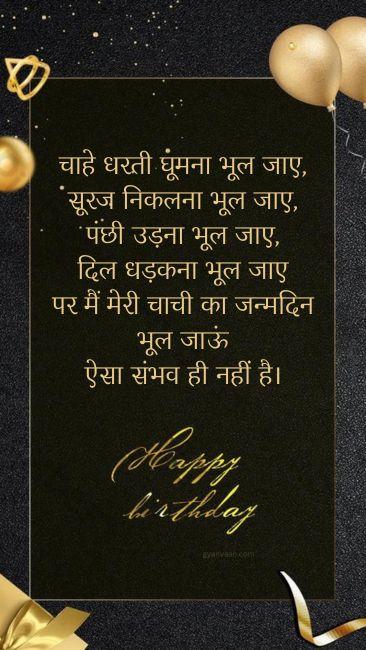 चाहे धरती घूमना भूल जाए,
सूरज निकलना भूल जाए,
पंछी उड़ना भूल जाए,
दिल धड़कना भूल जाए
पर मैं मेरी चाची का जन्मदिन
भूल जाऊं
ऐसा संभव ही नहीं है।
Happy
birthday
gyanvaan.com